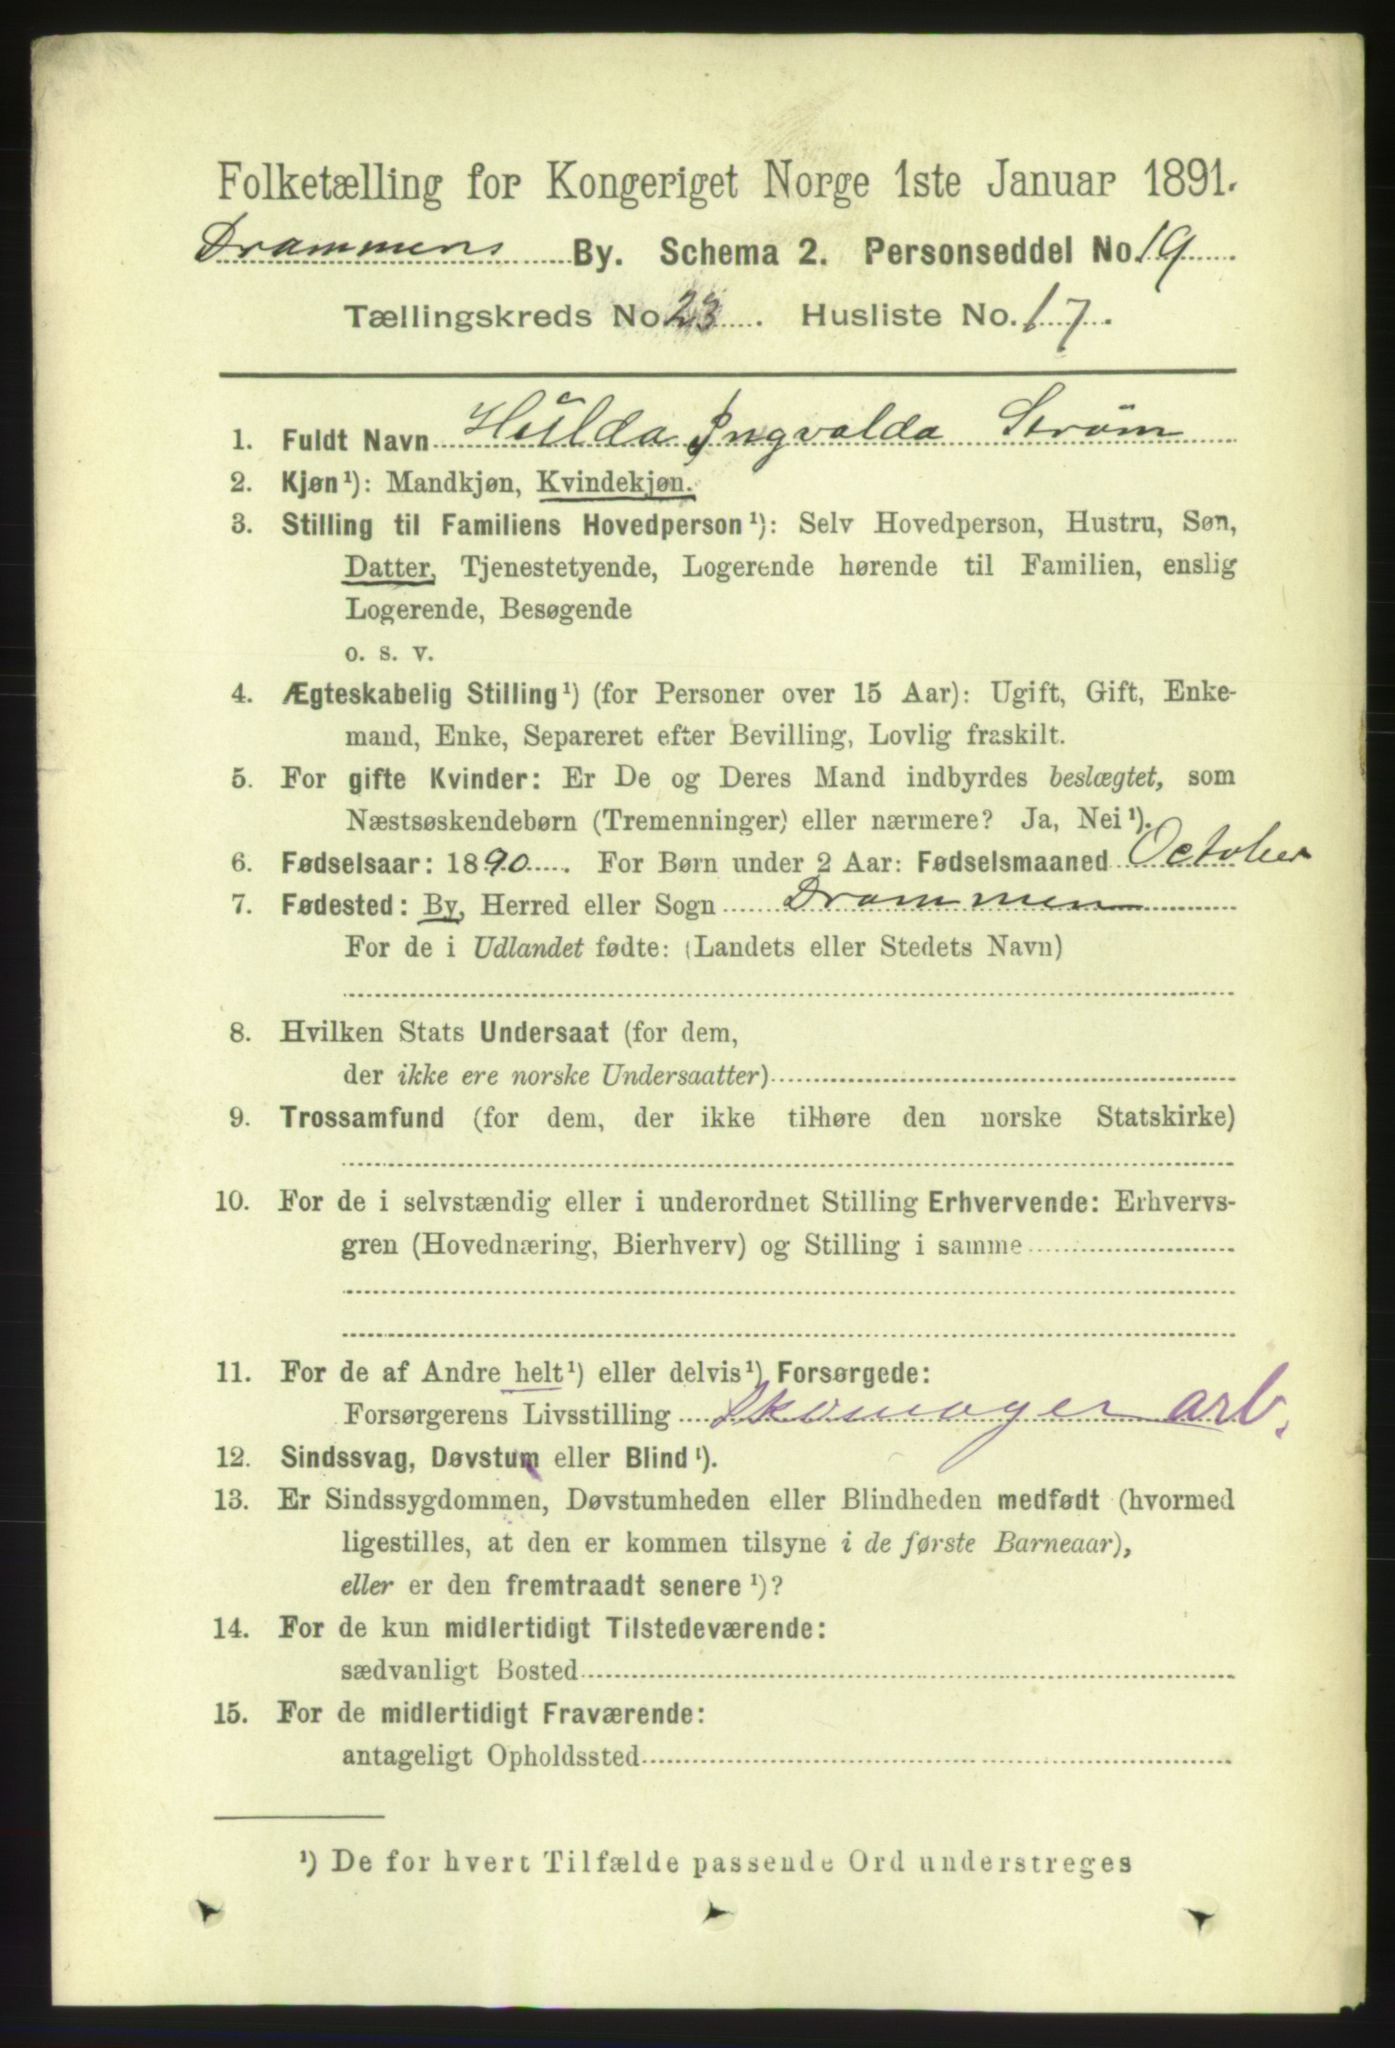 Folketælling for Kongeriget Norge 1ste Januar 1891.
Drammens By. Schema 2. Personseddel No. 19
Tællingskreds No 23. Husliste No. 17.
1. Fuldt Navn Hulda Ingvalda Strøm
2. Kjøn¹): Mandkjøn, Kvindekjøn.
3. Stilling til Familiens Hovedperson¹): Selv Hovedperson, Hustru, Søn,
Datter, Tjenestetyende, Logerende hørende til Familien, enslig
Logerende, Besøgende
o. s. v.
4. Ægteskabelig Stilling¹) (for Personer over 15 Aar): Ugift, Gift, Enke-
mand, Enke, Separeret efter Bevilling, Lovlig fraskilt.
5. For gifte Kvinder: Er De og Deres Mand indbyrdes beslægtet, som
Næstsøskendebørn (Tremenninger) eller nærmere? Ja, Nei¹).
6. Fødselsaar: 1890. For Børn under 2 Aar: Fødselsmaaned October
7. Fødested: By, Herred eller Sogn Drammen
For de i Udlandet fødte: (Landets eller Stedets Navn)
8. Hvilken Stats Undersaat (for dem,
der ikke ere norske Undersaatter)
9. Trossamfund (for dem, der ikke tilhøre den norske Statskirke)
10. For de i selvstændig eller i underordnet Stilling Erhvervende: Erhvervs-
gren (Hovednæring, Bierhverv) og Stilling i samme
11. For de af Andre helt¹) eller delvis¹) Forsørgede:
Forsørgerens Livsstilling Skomager arb.
12. Sindssvag, Døvstum eller Blind¹).
13. Er Sindssygdommen, Døvstumheden eller Blindheden medfødt (hvormed
ligestilles, at den er kommen tilsyne i de første Barneaar),
eller er den fremtraadt senere¹)?
14. For de kun midlertidigt Tilstedeværende:
sædvanligt Bosted
15. For de midlertidigt Fraværende:
antageligt Opholdssted
¹) De for hvert Tilfælde passende Ord understreges